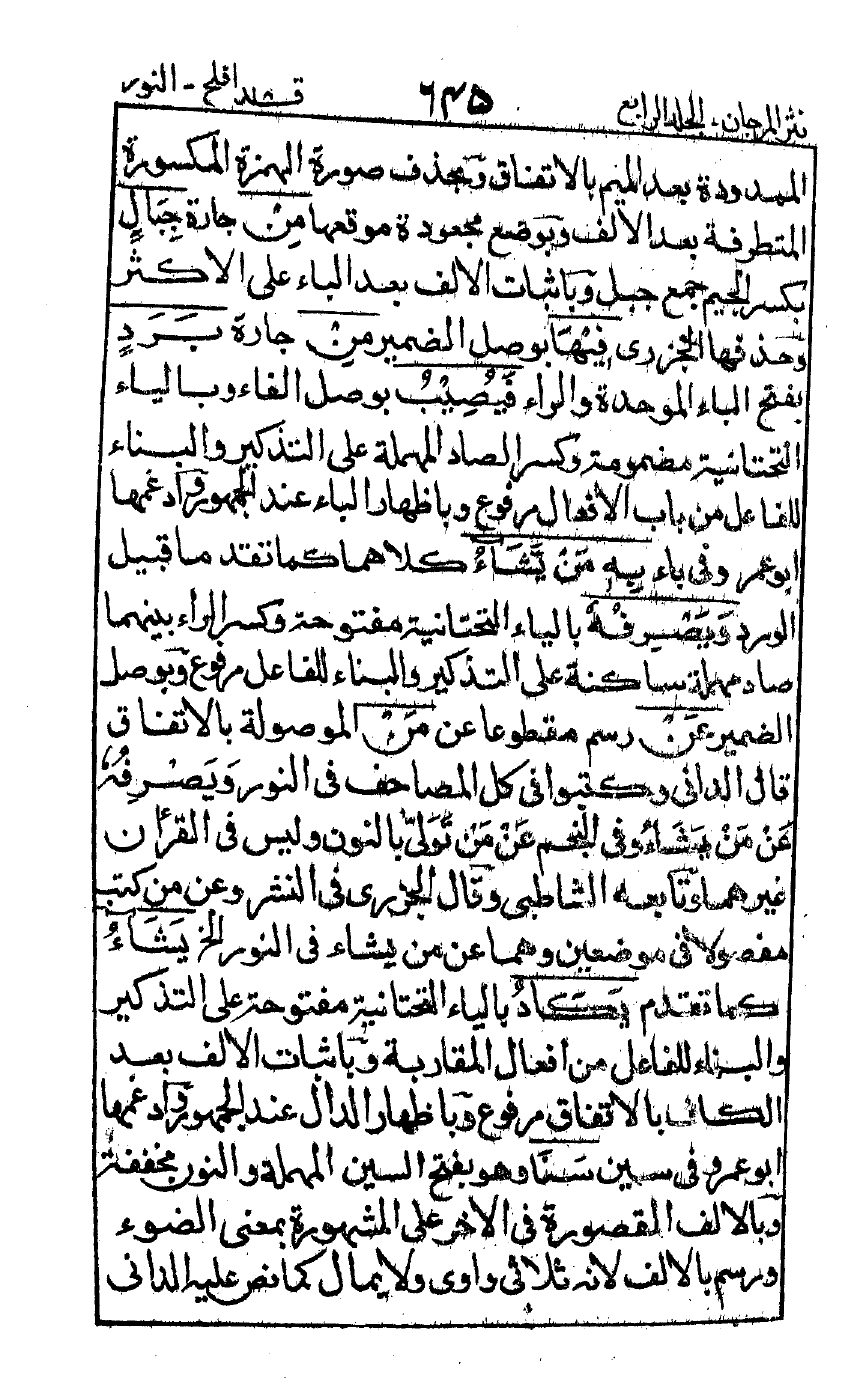 نثر المرجان - الجلد الرابع ٦٤٥ قد افلح - النور
الممدودة بعد الميم بالاتفاق وبحذف صورة الهمزة المكسورة
المتطرفة بعد الألف وبوضع مجعودة موقعها مِنْ جارة جِبَالٍ
بكسر الجيم جمع جبل وباثبات الالف بعد الباء على الاكثر
وحذفها الجزرى فِيْهَا بوصل الضمير مِنْ جارة بَرَدٍ
بفتح الباء الموحدة والراء فَيُصِيْبُ بوصل الفاء وبالياء
التحتانية مضمومة وكسر الصاد المهملة على التذكير والبناء
للفاعل من باب الافعال مرفوع وباظهار الباء عند الجمهور وادغمها
ابو عمرو فى باء بِهٖ مَنْ يَّشَآءُ كلاهما كما تقدما قبيل
الورد وَيَصْرِفُهٗ بالياء التحتانية مفتوحة وكسر الراء بينهما
صاد مهملة ساكنة على التذكير والبناء للفاعل مرفوع وبوصل
الضمير عَنْ رسم مقطوعا عن مَنْ الموصولة بالاتفاق
قال الدانى وكتبوا فى كل المصاحف فى النور وَيَصْرِفُهٗ
عَنْ مَنْ يَشَاءُ وفى النجم عَنْ مَنْ تَوَلّٰى بالنون وليس فى القرأن
غيرهما وتابعه الشاطبى وقال الجزرى فى النشر وعن من كتب
مفصولا فى موضعين وهما عن من يشاء فى النور الخ يَشَآءُ
كما تقدم يَكَادُ بالياء التحتانية مفتوحة على التذكير
والبناء للفاعل من افعال المقاربة وباثبات الالف بعد
الكاف بالاتفاق مرفوع وباظهار الدال عند الجمهور وادغمها
ابو عمرو فى سين سَنَا وهو بفتح السين المهملة والنون مخففة
وبالالف المقصورة فى الاخر على المشهورة بمعنى الضوء
ورسم بالالف لانه ثلاثى واوى ولا يمال كما نص عليه الدانى